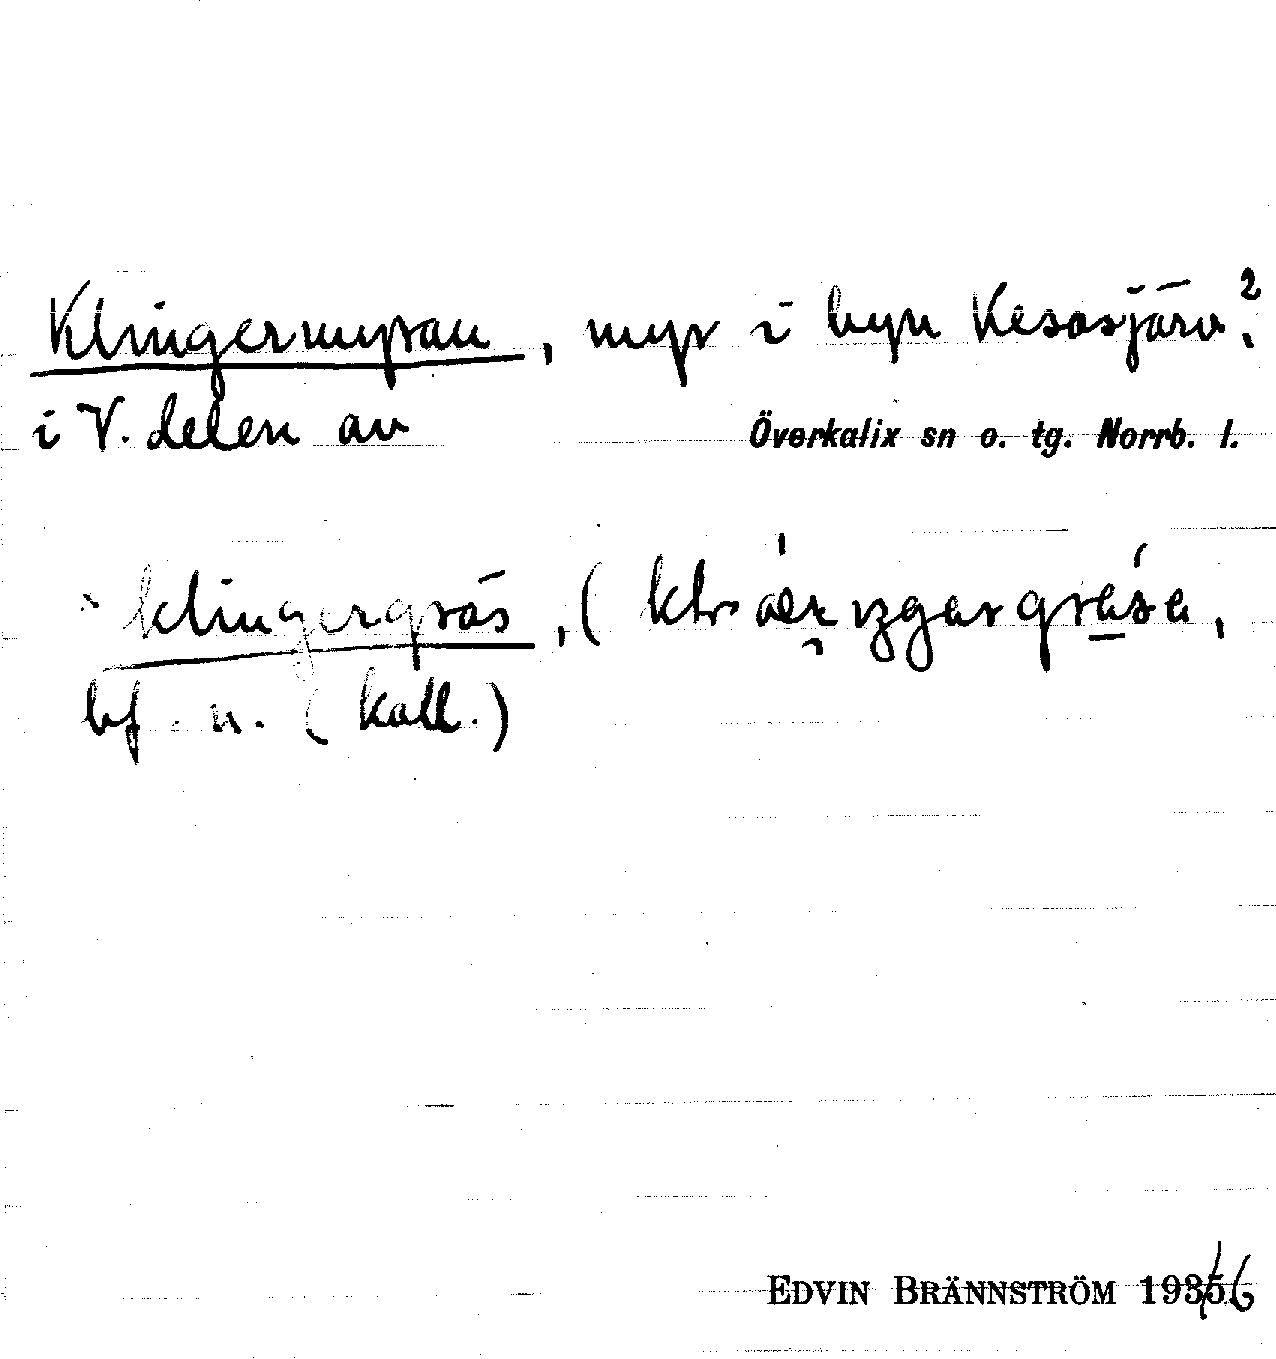 Klingermyran, myr i byn Kesasjärv?
i V. delen av Överkalix sn o. tg. Norrb. l.
klingergräs, (
bf. n. (koll.)
EDVIN BRÄNNSTRÖM 1936